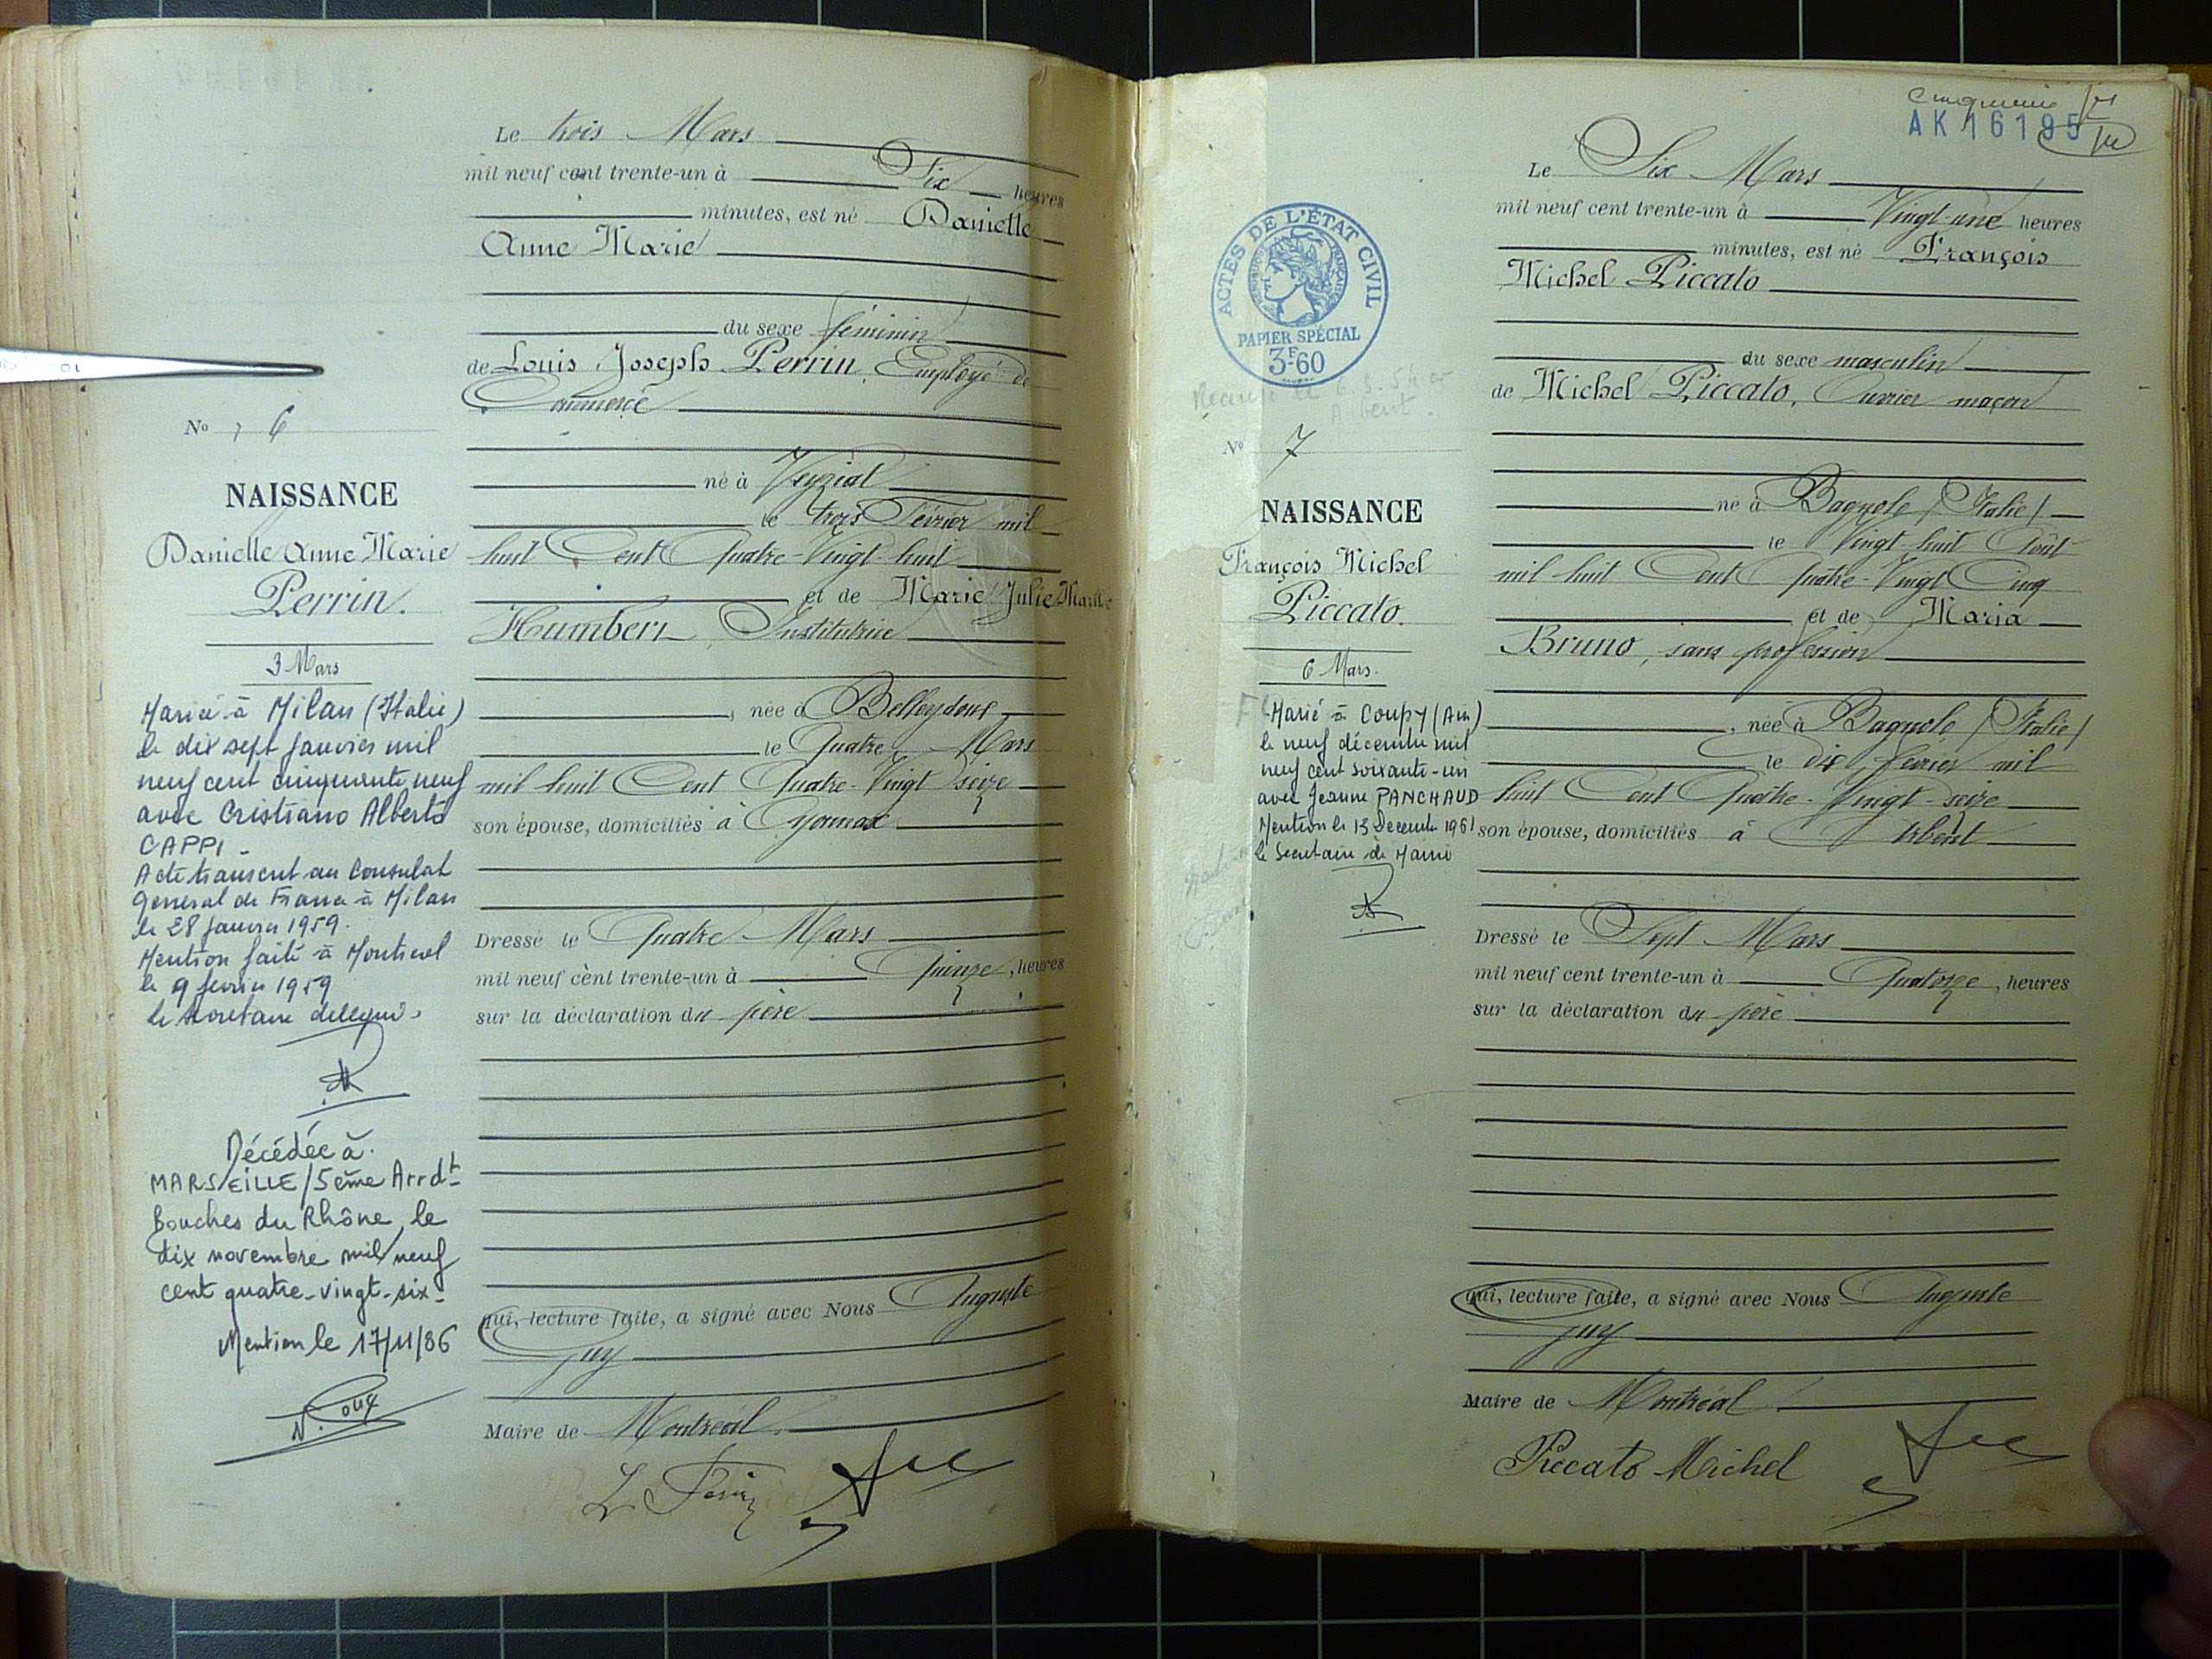 Le trois Mars
mil neuf cent trente-un à Six heures
minutes, est né Danielle
Anne Marie
du sexe féminin
de Louis Joseph Perrin, Employé de
Commerce
né à Veyziat
le trois Février mil
huit Cent Quatre-Vingt-huit
et de Marie Julie
Humbert, Institutrice
, née à Belleydoux
le Quatre Mars
mil huit Cent Quatre-Vingt seize
son épouse, domiciliés à Oyonnax
Dressé le Quatre Mars
mil neuf cent trente-un à Quinze, heures
sur la déclaration du père
qui, lecture faite, a signé avec Nous Auguste
Guy
Maire de Montréal
No 6
NAISSANCE
Danielle Anne Marie
Perrin.
3 Mars
Mariée à Milan (Italie)
le dix sept janvier mil
neuf cent cinquante neuf
avec Cristiano Alberto
CAPPI
Acte transcrit au Consulat
général de France à Milan
le 28 janvier 1959.
Mention faite à Montréal
le 9 février 1959
le secrétaire délégué.
Décédée à
MARSEILLE/5ème Arrdt
Bouches du Rhône, le
dix novembre mil neuf
cent quatre-vingt-six-
Mention le 17/11/86
AK 16195
Le Six Mars
mil neuf cent trente-un à Vingt-une heures
minutes, est né François
Michel Piccato
du sexe masculin
de Michel Piccato, Ouvrier maçon
né à Bagnolo (Italie)
le Vingt huit Août
mil-huit Cent Quatre-Vingt Cinq
et de Maria
Bruno, sans profession
, née à Bagnolo (Italie)
le dix février mil
huit Cent Quatre-Vingt-seize
son épouse, domiciliés à Arbent
Dressé le Sept Mars
mil neuf cent trente-un à Quatorze, heures
sur la déclaration du père
qui, lecture faite, a signé avec Nous Auguste
Guy
Maire de Montréal
Piccato Michel
ACTES DE L'ÉTAT CIVIL
PAPIER SPÉCIAL
3F60
No 7
NAISSANCE
François Michel
Piccato.
6 Mars.
Marié à Coupy (Ain)
le neuf décembre mil
neuf cent soixante-un
avec Jeanne PANCHAUD
Mention le 13 Décembre 1961
le Secrétaire de Mairie